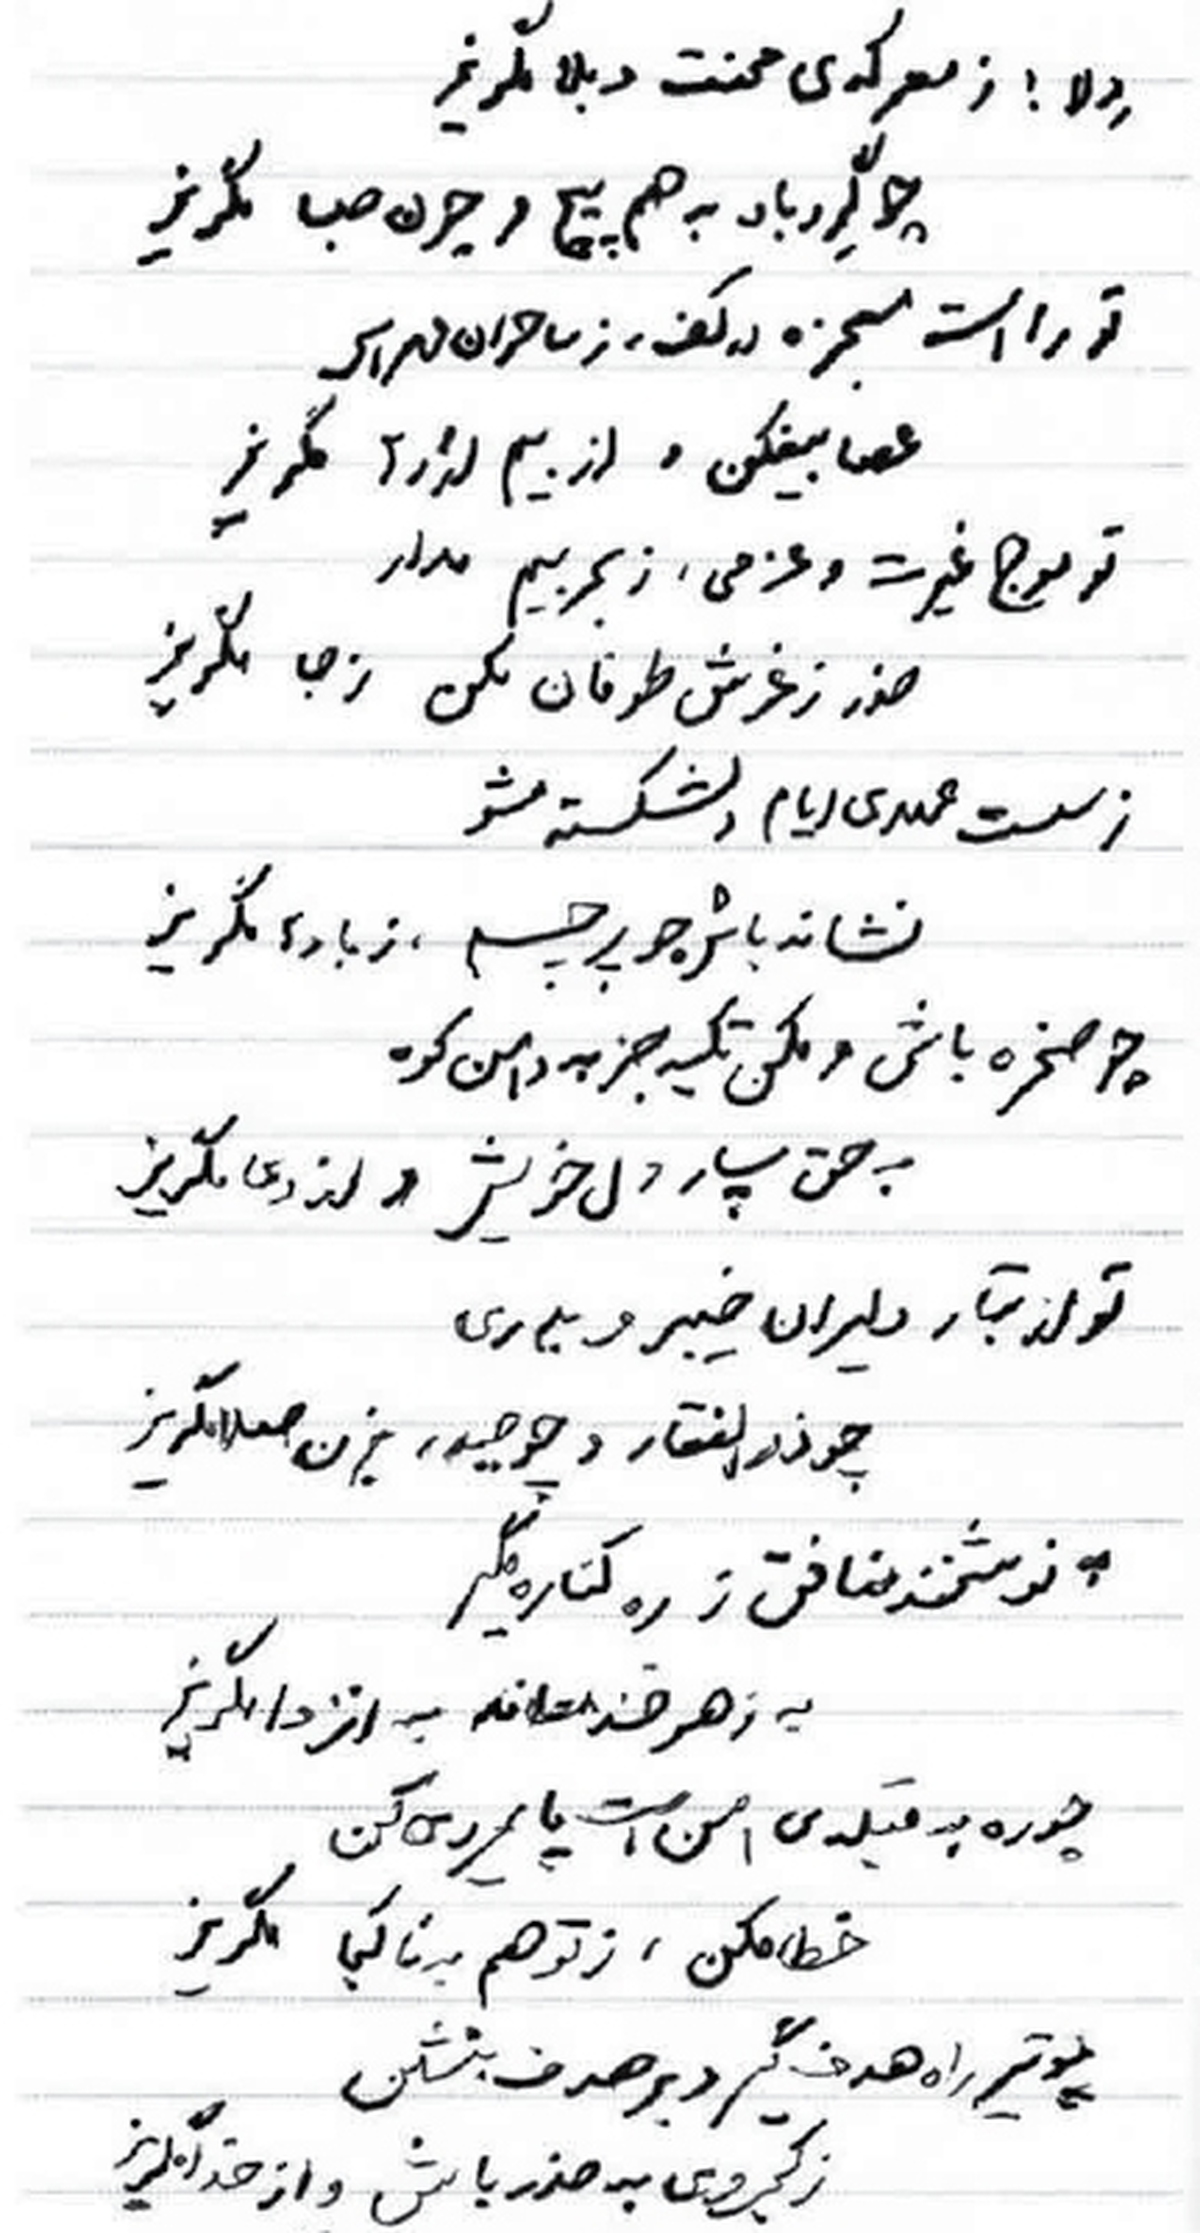 دلا! ز معرکه‌ی محنت و بلا مگریز
چو گردباد به هم پیچ و چون صبا مگریز
تو را است معجزه در کف، ز ساحران مهراس
عصا بیفکن و از بیم اژدها مگریز
تو موج غیرت و عزمی، ز بحر بیم مدار
حذر ز غرش طوفان مکن ز جا مگریز
ز سست عهدی ایام دلشکسته مشو
نشانه باش چو پرچم، ز بادها مگریز
چو صخره باش و مکن تکیه جز به دامن کوه
به حق سپار دل خویش و از دعا مگریز
تو از تبار دلیران خیبر و بدری
چو ذوالفقار و چو حیدر، بزن صلا مگریز
به نوشخند منافق ز ره کناره مگیر
به زهرخند به انزوا مگریز
چو ره به قبله‌ی امن است پایمردی کن
خطا مکن، ز توهم به ناکجا مگریز
چو تیر راه هدف گیر و بر هدف بنشین
ز کجروی به حذر باش و از خدا مگریز